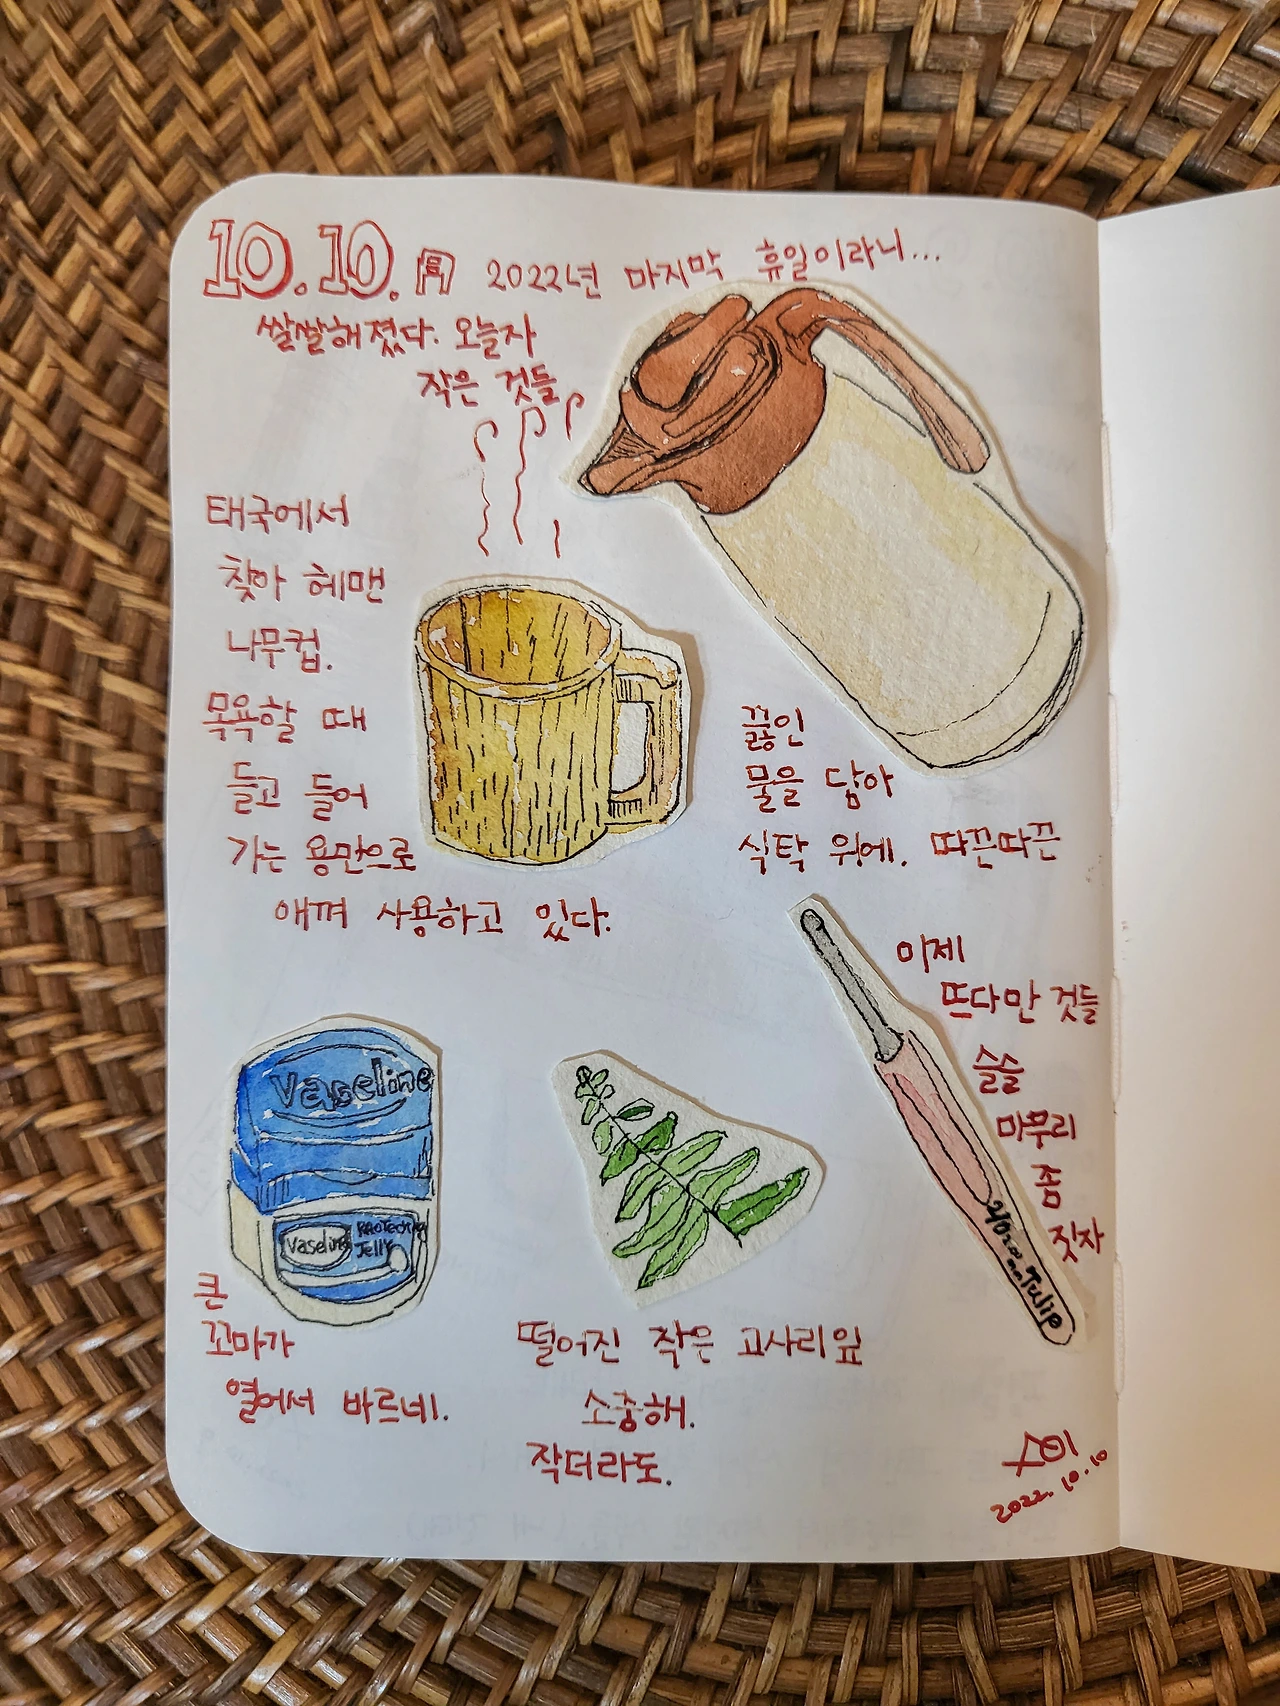 10.10. 月 2022년 마지막 휴일이라니...
쌀쌀해졌다. 오늘자
작은 것들
태국에서
찾아 헤맨
나무컵.
목욕할 때
들고 들어
가는 용만으로
애껴 사용하고 있다.
끓인
물을 담아
식탁 위에. 따끈따끈
이제
뜨다만 것들
슬슬
마무리
좀
짓자
Tulip
Vaseline
Vaseline
Jelly
큰
꼬마가
열어서 바르네.
떨어진 작은 고사리잎
소중해.
작더라도.
2022.10.10